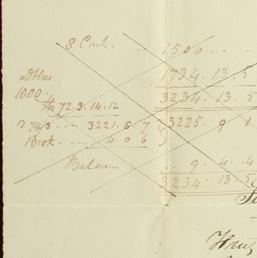 8 Cent. .. 1500 ...
1734.13.5
Dblns
1000. 3234.13.5
72.3.14.12
743 .... 3221.6.7 3225.9.1
Brok. ... 4.0.6
Balan .. 9.4.4
3234.13.5